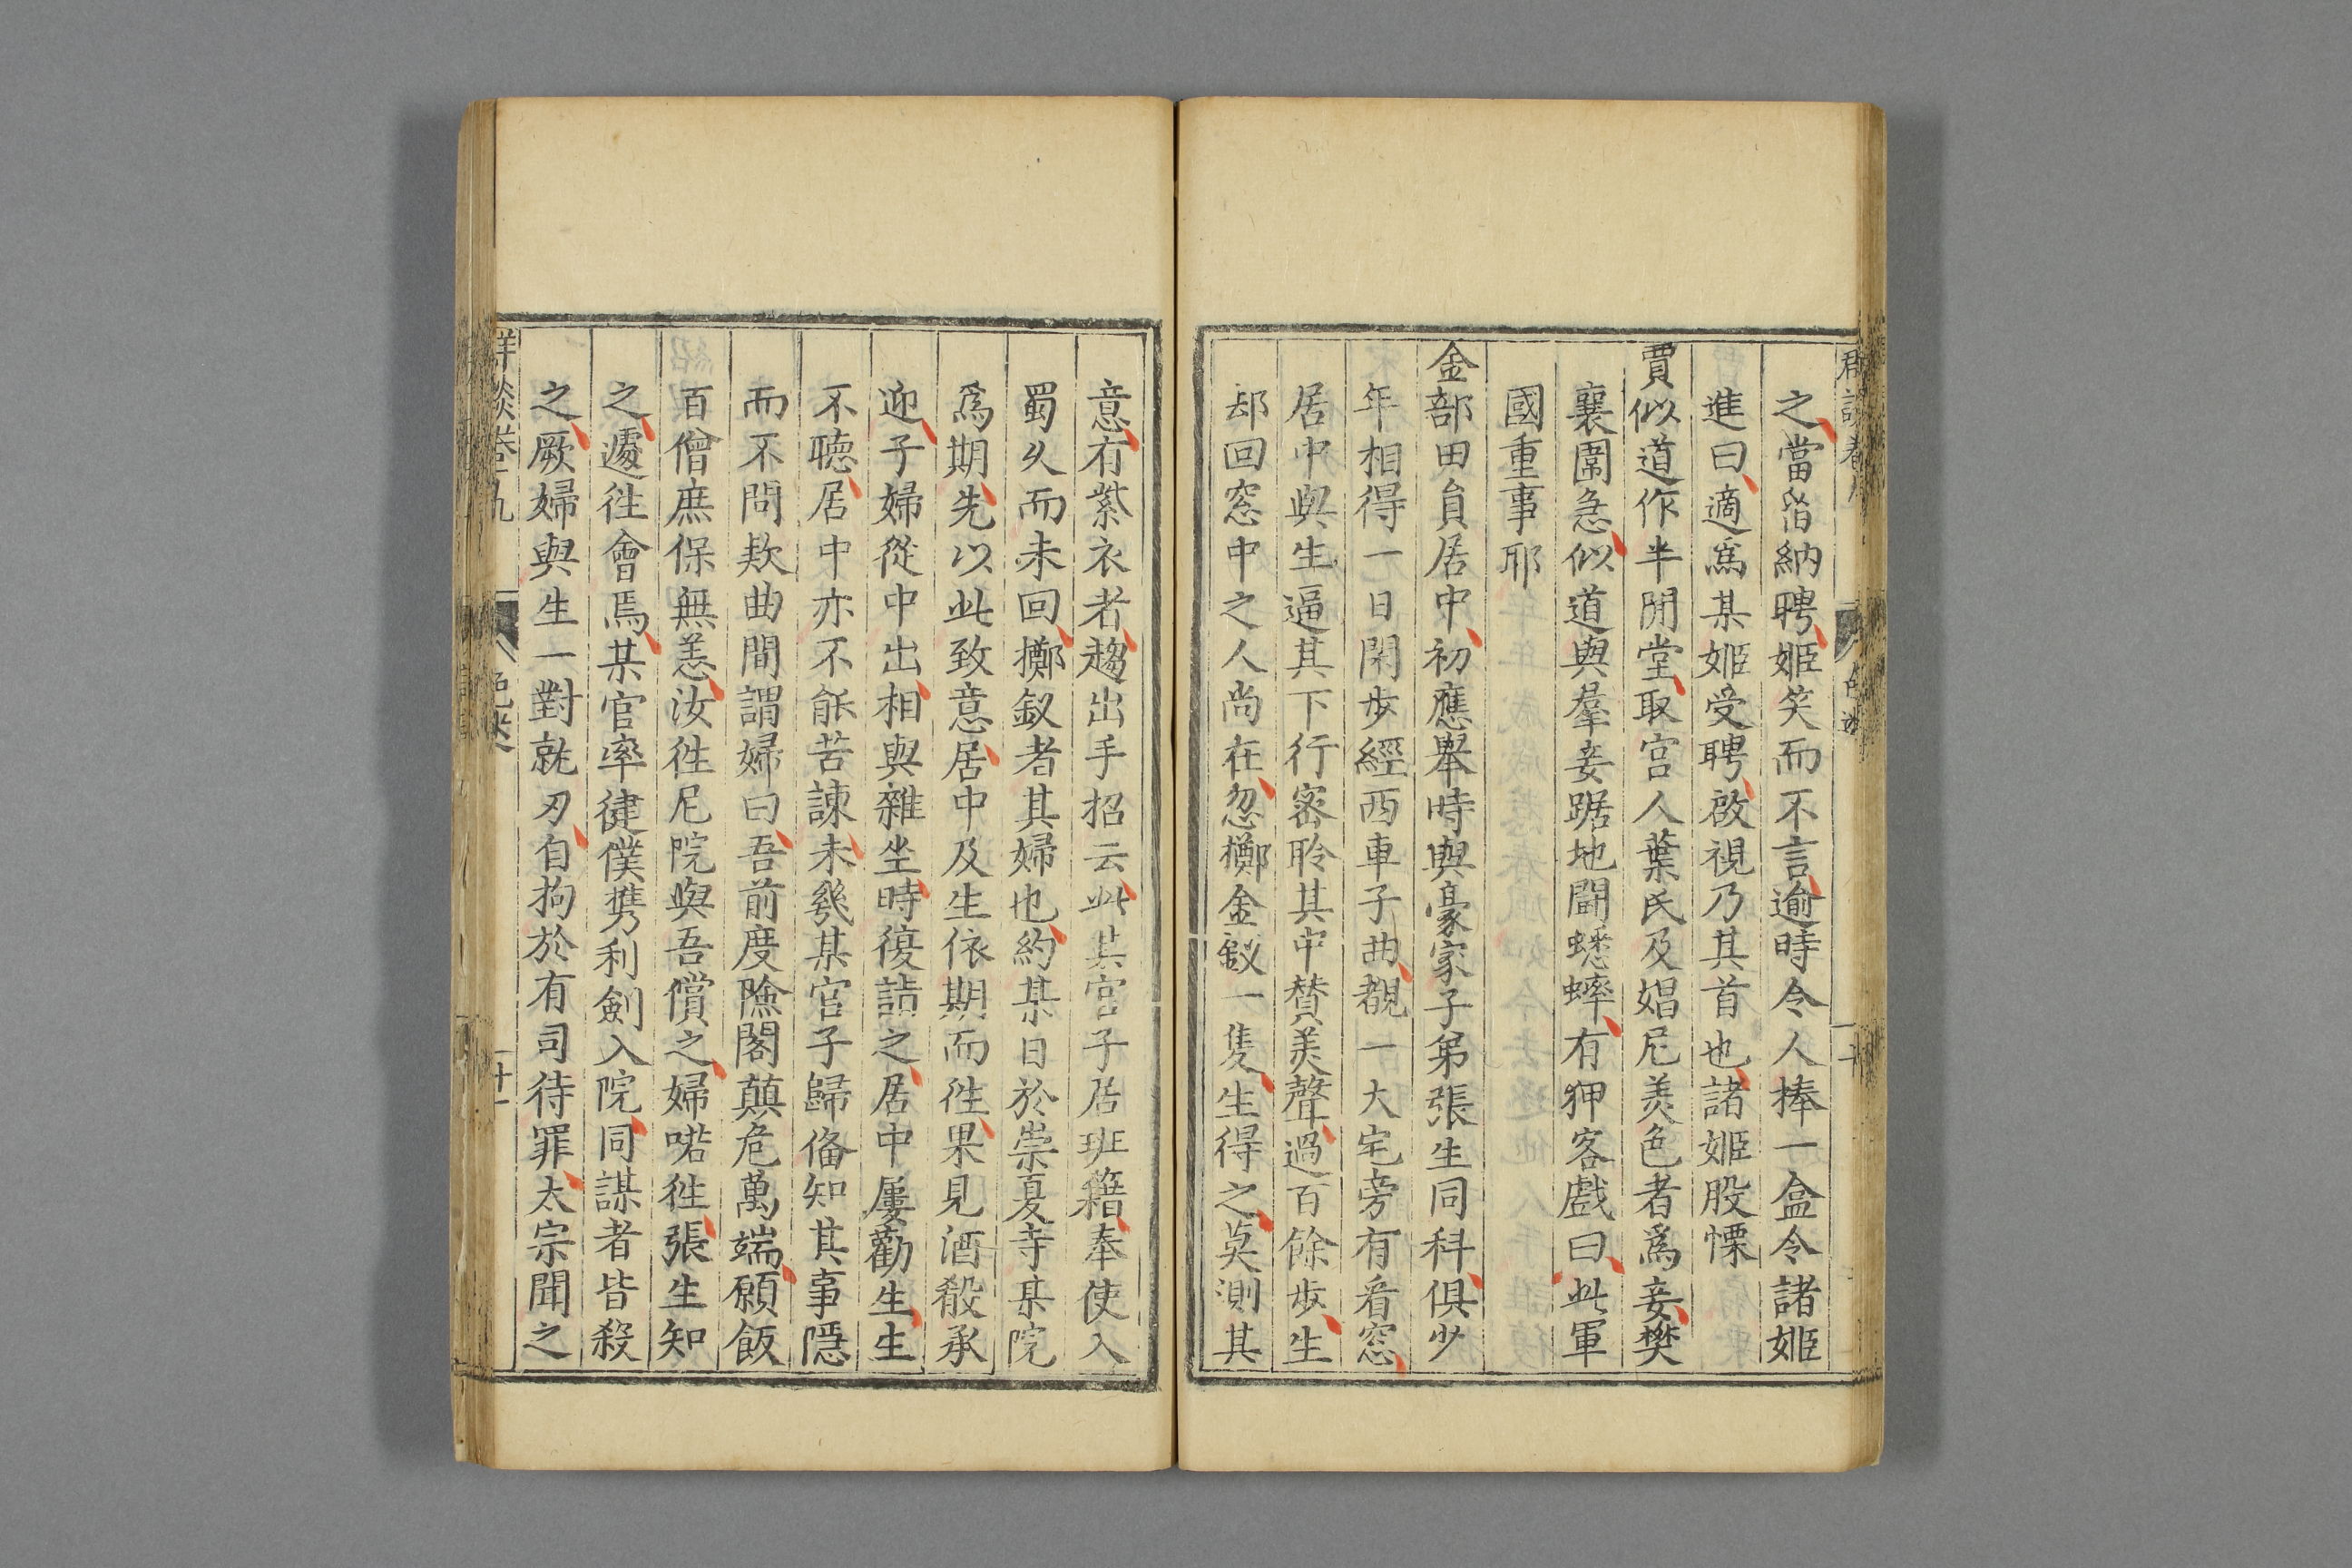 之當畨納聘姬笑而不言逾時令人捧一盒令諸姬
進曰適爲某姬受聘啟視乃其首也諸姬股慄
賈似道作半閒堂取宮人葉氏及娼尼美色者爲妾樊
襄圍急似道與羣妾踞地鬪蟋蟀有狎客戲曰此軍
國重事耶
金部田員居中初應舉時與豪家子弟張生同科俱少
年相得一日閑步經西車子曲覩一大宅旁有看窓
居中與生逼其下行密聆其中賛美聲過百餘步生
却回窓中之人尚在忽擲金釵一隻生得之莫測其
意有紫衣者趨出手招云此某宮子居班籍奉使入
蜀久而未回擲釵者其婦也約某日於崇夏寺某院
爲期先以此致意居中及生依期而徃果見酒殽承
迎子婦從中出相與雜坐時復詰之居中屢勸生生
不聴居中亦不能苦諫未幾某官子歸俻知其事隱
而不問欵曲間謂婦曰吾前度險閣顛危萬端願飯
百僧庶保無恙汝徃尼院與吾償之婦喏徃張生知
之遽徃會焉某官率健僕携利劍入院同謀者皆殺
之厥婦與生一對就刃自拘於有司待罪太宗聞之
群談卷九 色迷 十一